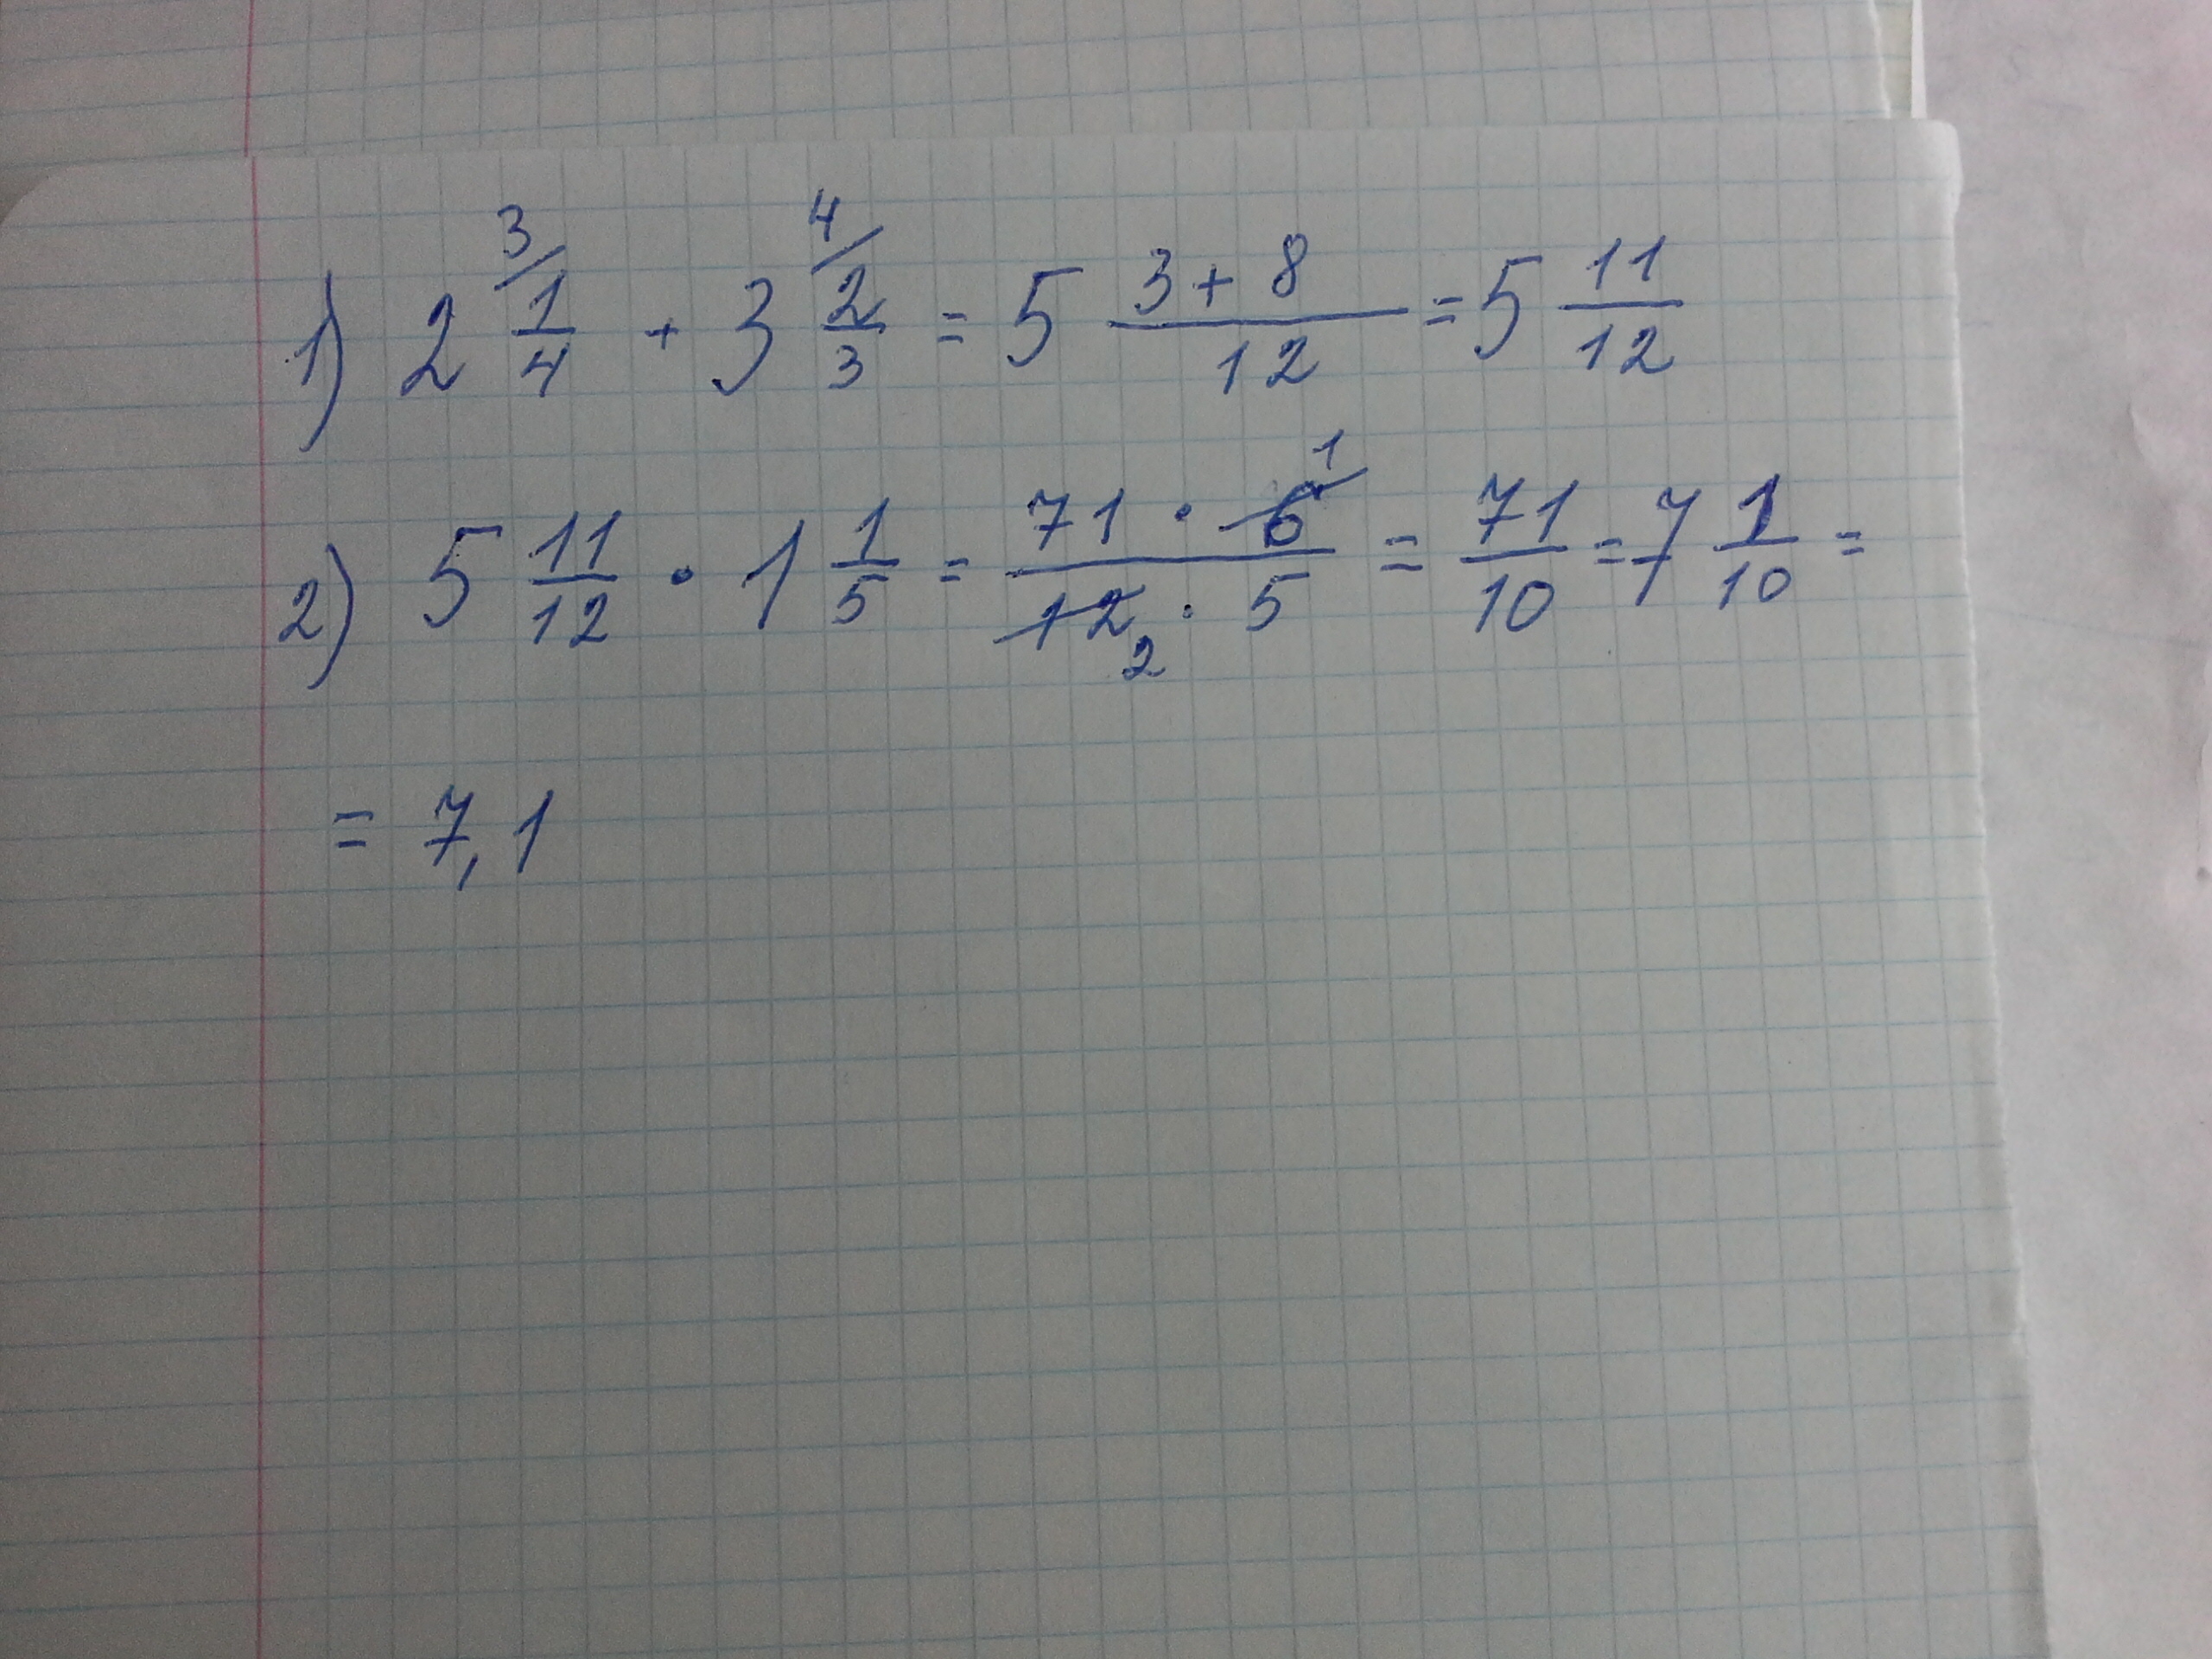 1) 2 3/ 1/4 + 3 4/ 2/3 = 5 (3+8)/12 = 5 11/12
2) 5 11/12 · 1 1/5 = (71 · 6 1)/(12 2 · 5) = 71/10 = 7 1/10 =
= 7,1